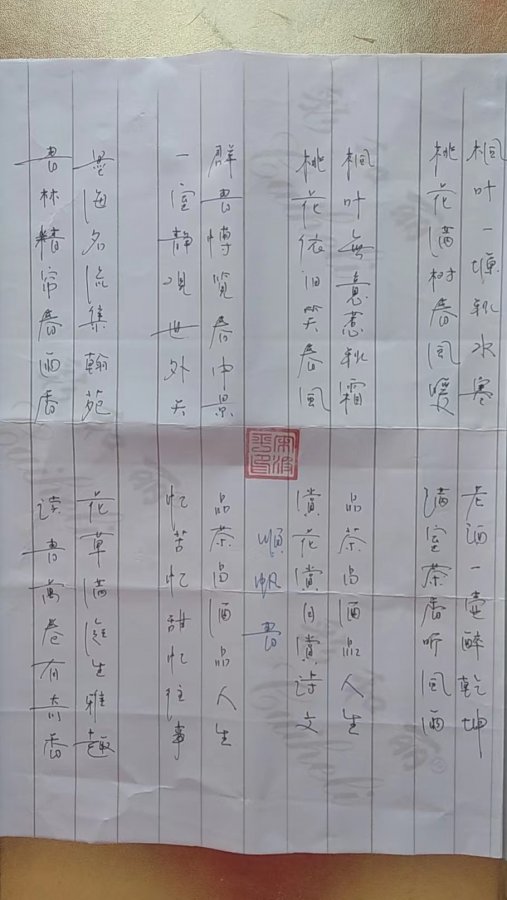 枫叶一塘秋水寒
桃花满树春风暖
枫叶無意惹秋霜
桃花依旧笑春风
群書博览春中景
一室静观世外天
墨海名流集翰苑
書林精帘春雨香
老酒一壶醉乾坤
满室茶香听风雨
品茶品酒品人生
賞花賞月賞诗文
順帆書
品茶品酒品人生
忆苦忆甜忆往事
花草满庭生雅趣
读書萬卷有青香